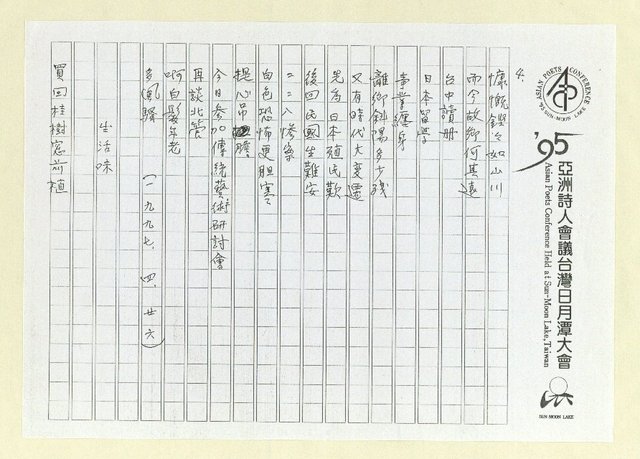 ASIAN POETS CONFERENCE
'95 SUN-MOON LAKE
'95 亞洲詩人會議台灣日月潭大會
Asian Poets Conference Held at Sun-Moon Lake, Taiwan
SUN MOON LAKE
4.
慷慨鏗冷如山川
而今故鄉何其遠
台中讀冊
日本留學
事業纏身
離鄉斜陽多少殘
又有時代大變遷
先為日本殖民歎
後回民國生難安
二二八慘案
白色恐怖更胆寒
提心吊膽
今日參加傳統藝術研討會
再談北管
啊白髮年老
多風騷 (一九九七．四．廿六)
生活味
買回桂樹窓前植